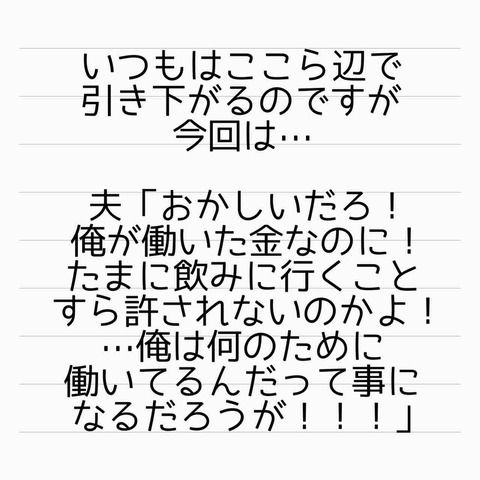 いつもはここら辺で
引き下がるのですが
今回は…
夫「おかしいだろ！
俺が働いた金なのに！
たまに飲みに行くこと
すら許されないのかよ！
…俺は何のために
働いてるんだって事に
なるだろうが！！！」